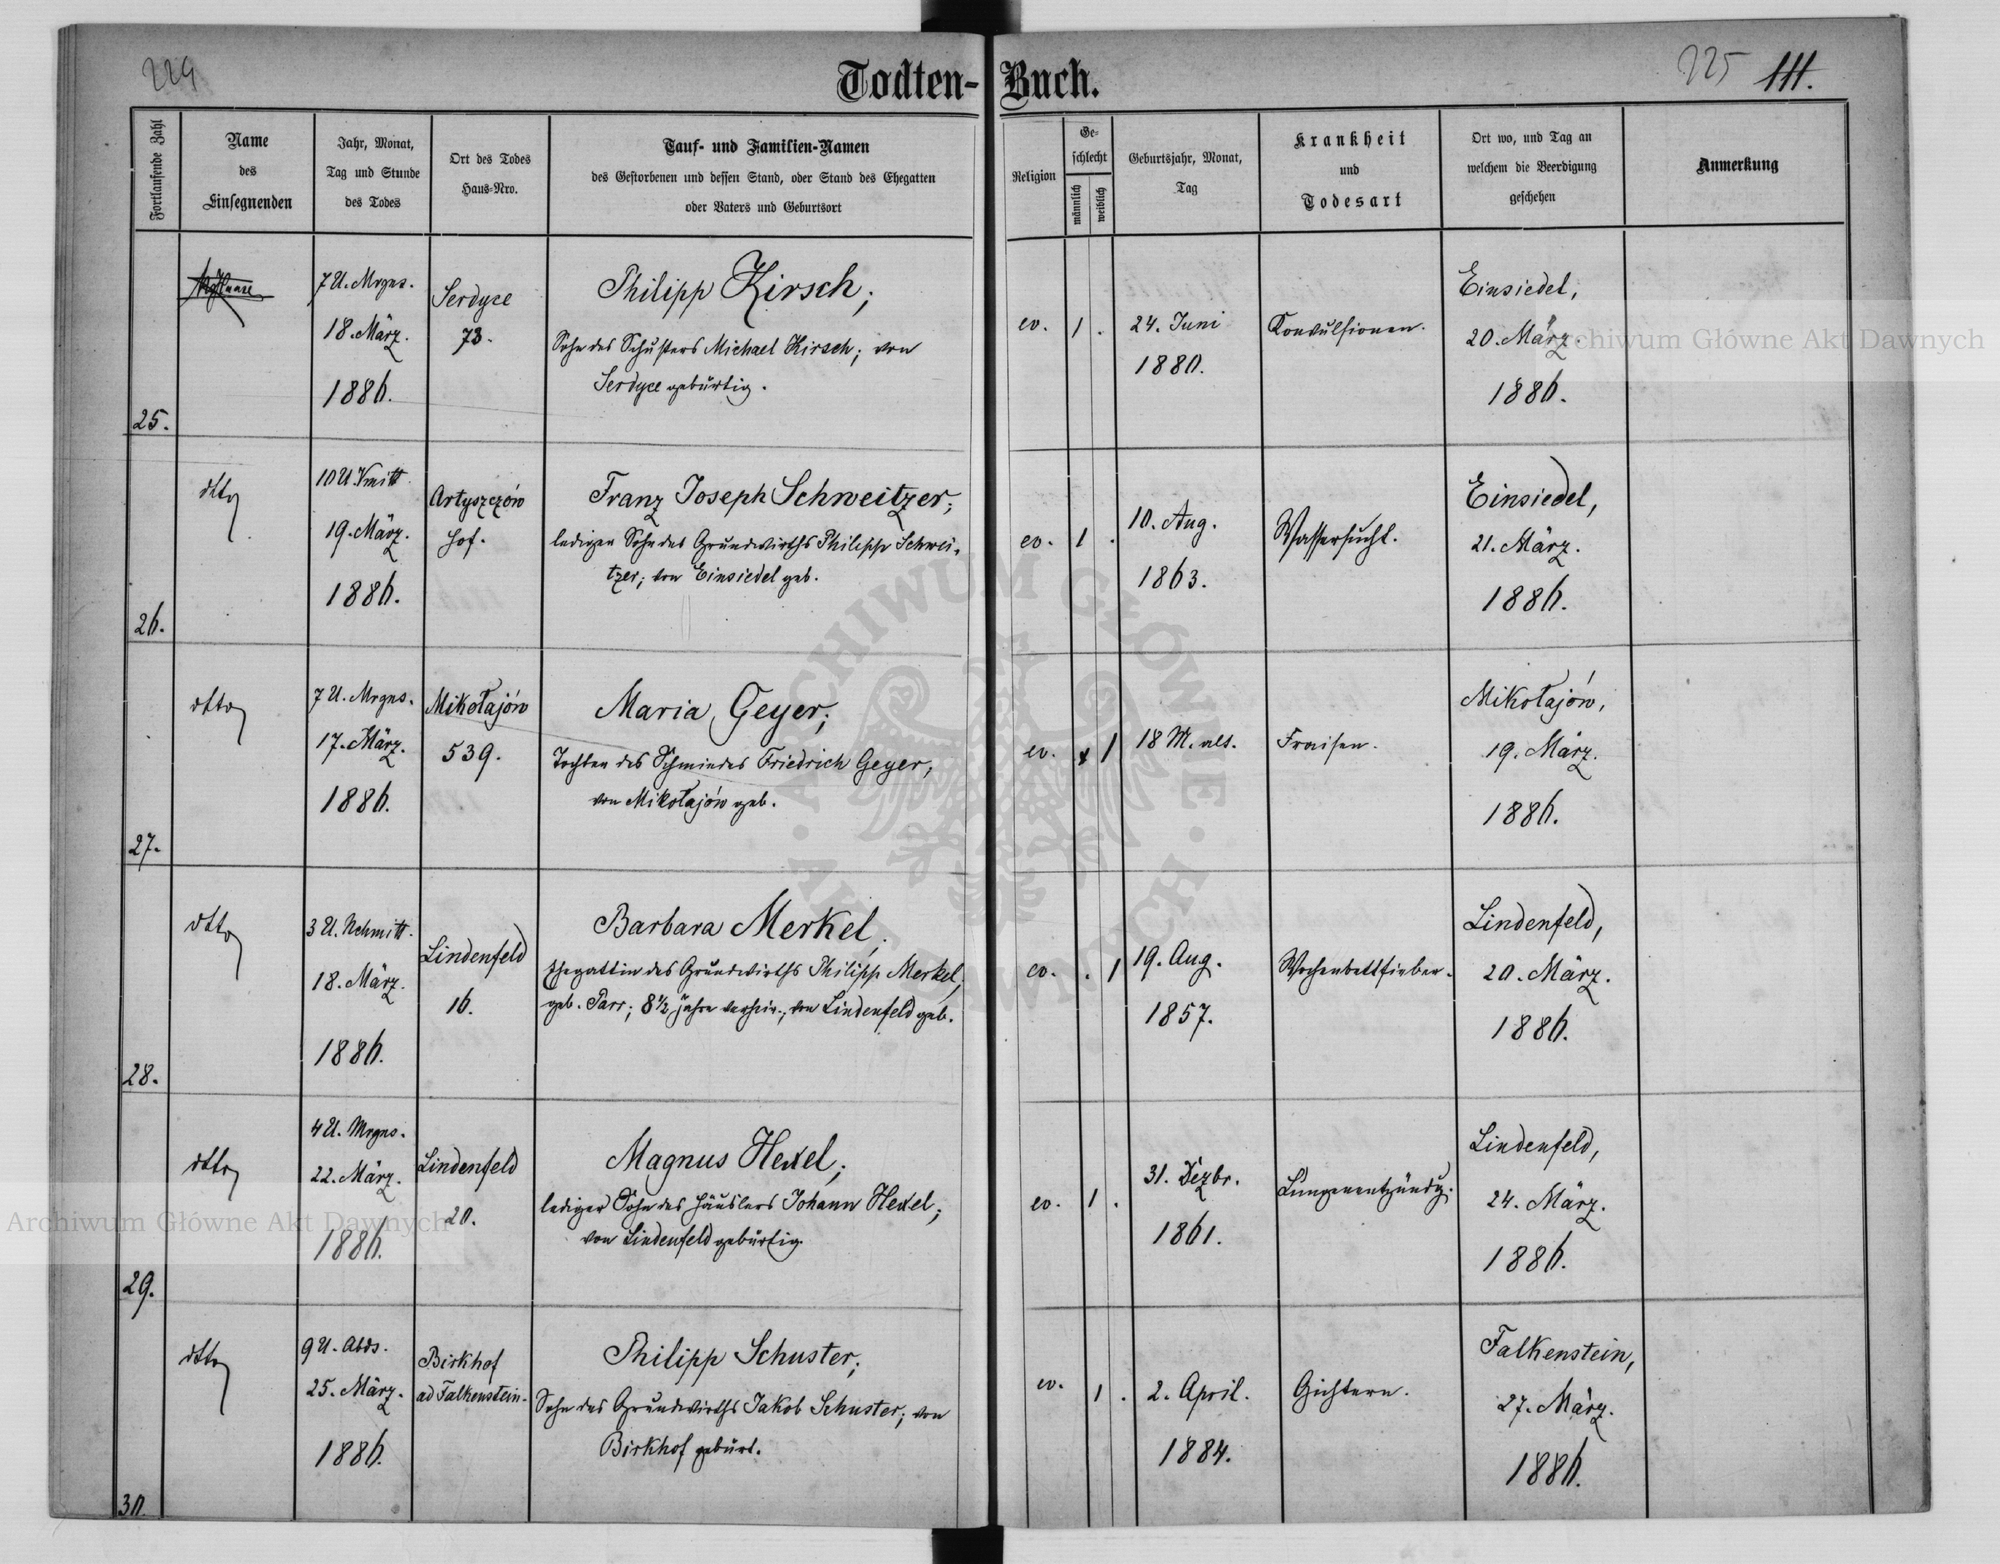 224
Todten-Buch.
225 111.
Fortlaufende Zahl
Name
des
Einsegnenden
Jahr, Monat,
Tag und Stunde
des Todes
Ort des Todes
Haus-Nro.
Tauf- und Familien-Namen
des Gestorbenen und dessen Stand, oder Stand des Ehegatten
oder Vaters und Geburtsort
Religion
Ge-
schlecht
männlich
weiblich
Geburtsjahr, Monat,
Tag
Krankheit
und
Todesart
Ort wo, und Tag an
welchem die Beerdigung
geschehen
Anmerkung
25.
7 U. Mrgns.
18. März.
1886.
Serdyce
73.
Philipp Kirsch;
Sohn des Schusters Michael Kirsch; von
Serdyce gebürtig.
ev. 1 .
24. Juni
1880.
Konvulsionen.
Einsiedel,
20. März.
1886.
26.
dtto
10 U. Vmitt
19. März.
1886.
Artyszczów
Hof.
Franz Joseph Schweitzer;
lediger Sohn des Grundwirths Philipp Schwei-
tzer; von Einsiedel geb.
ev. 1 .
10. Aug.
1863.
Wassersucht.
Einsiedel,
21. März.
1886.
27.
dtto
7 U. Mrgns.
17. März.
1886.
Mikołajów
539.
Maria Geyer;
Tochter des Schmiedes Friedrich Geyer;
von Mikołajów geb.
ev. 1
18 M. alt.
Fraisen.
Mikołajów,
19. März.
1886.
28.
dtto
3 U. Nchmitt.
18. März.
1886.
Lindenfeld
16.
Barbara Merkel;
Ehegattin des Grundwirths Philipp Merkel;
geb. Parr; 8 1/2 Jahre verheir.; von Lindenfeld geb.
ev. . 1
19. Aug.
1857.
Wochenbettfieber.
Lindenfeld,
20. März.
1886.
29.
dtto
4 U. Mrgns.
22. März.
1886.
Lindenfeld
20.
Magnus Hexel;
lediger Sohn des Häuslers Johann Hexel;
von Lindenfeld gebürtig.
ev. 1 .
31. Dezbr.
1861.
Lungenentzündg.
Lindenfeld,
24. März.
1886.
30.
dtto
9 U. Abds.
25. März.
1886.
Birkhof
ad Falkenstein.
Philipp Schuster;
Sohn des Grundwirths Jakob Schuster; von
Birkhof gebürt.
ev. 1 .
2. April.
1884.
Gichtern.
Falkenstein,
27. März.
1886.
Archiwum Główne Akt Dawnych
Archiwum Główne Akt Dawnych
ARCHIWUM GŁÓWNE AKT DAWNYCH